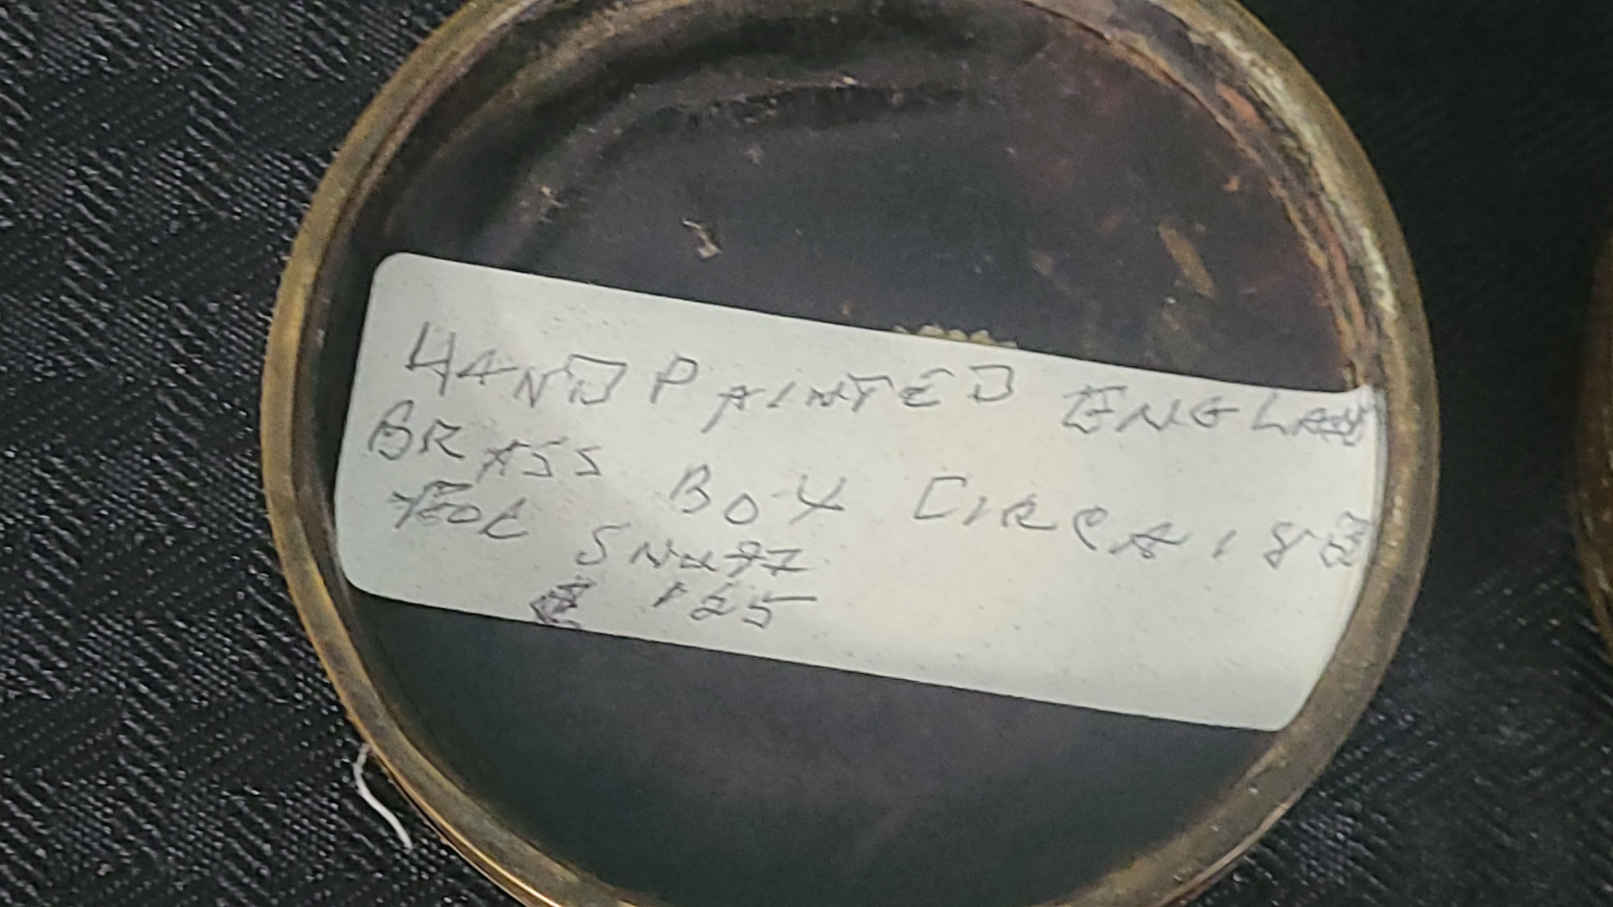 HAND PAINTED ENGLAN
BRASS BOX CIRCA 18
FOR SNUFF
125